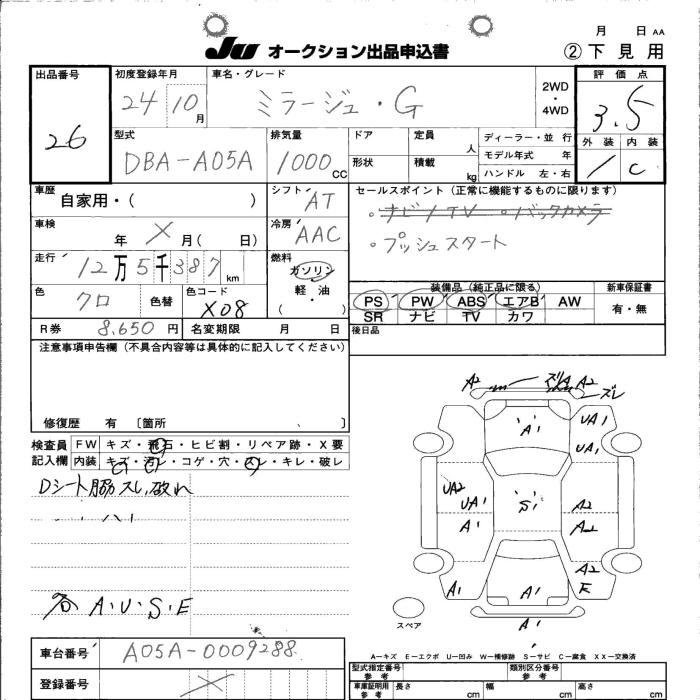 月 日 AA
JU オークション出品申込書 ② 下見用
出品番号 26
初度登録年月 24 10月
車名・グレード ミラージュ・G
2WD・4WD
評価点 3.5
型式 DBA-A05A
排気量 1000 CC
ドア 定員 人
形状 積載 kg
ディーラー・並行
モデル年式 年
ハンドル 左・右
外装 内装 C
車歴 自家用・( )
シフト AT
セールスポイント(正常に機能するものに限ります)
・ナビ/TV ・バックカメラ
・プッシュスタート
車検 年 X 月( 日)
冷房 AAC
走行 12万5千387 km
燃料 ガソリン・軽油 ( )
色 クロ 色替
色コード X08
装備品(純正品に限る) 新車保証書
PS PW ABS エアB AW 有・無
SR ナビ TV カワ
R券 8,650円 名変期限 月 日
後日品
注意事項申告欄(不具合内容等は具体的に記入してください)
修復歴 有 〔箇所 〕
検査員記入欄
FW キズ・飛石・ヒビ割・リペア跡・X要
内装 キズ・汚レ・コゲ・穴・スレ・キレ・破レ
Dシート脇スレ、破れ
各 A・U・S・E
A2 ズレ A2 ズレ
A1 UA1
UA1
UA2 UA1 S1 A2
A1 A2
A2
A1 A1 E
スペア A1
A-キズ E-エクボ U-凹み W-補修跡 S-サビ C-腐食 XX-交換済
車台番号 A05A-0009288
登録番号 X
型式指定番号 参考 類別区分番号 参考
車庫証明用 参考 長さ cm 幅 cm 高さ cm